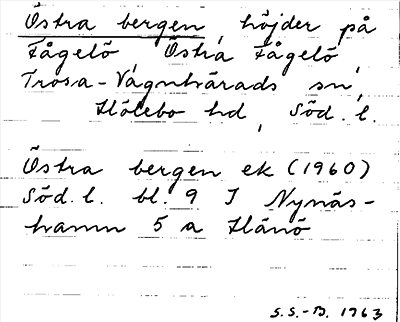 Östra bergen, höjder på
Fågelö, Östra Fågelö,
Trosa-Vagnhärads sn,
Hölebo hd, Söd. l.
Östra bergen ek (1960)
Söd. l. bl. 9 I Nynäs-
hamn 5 a Hånö
S.S.-B. 1963